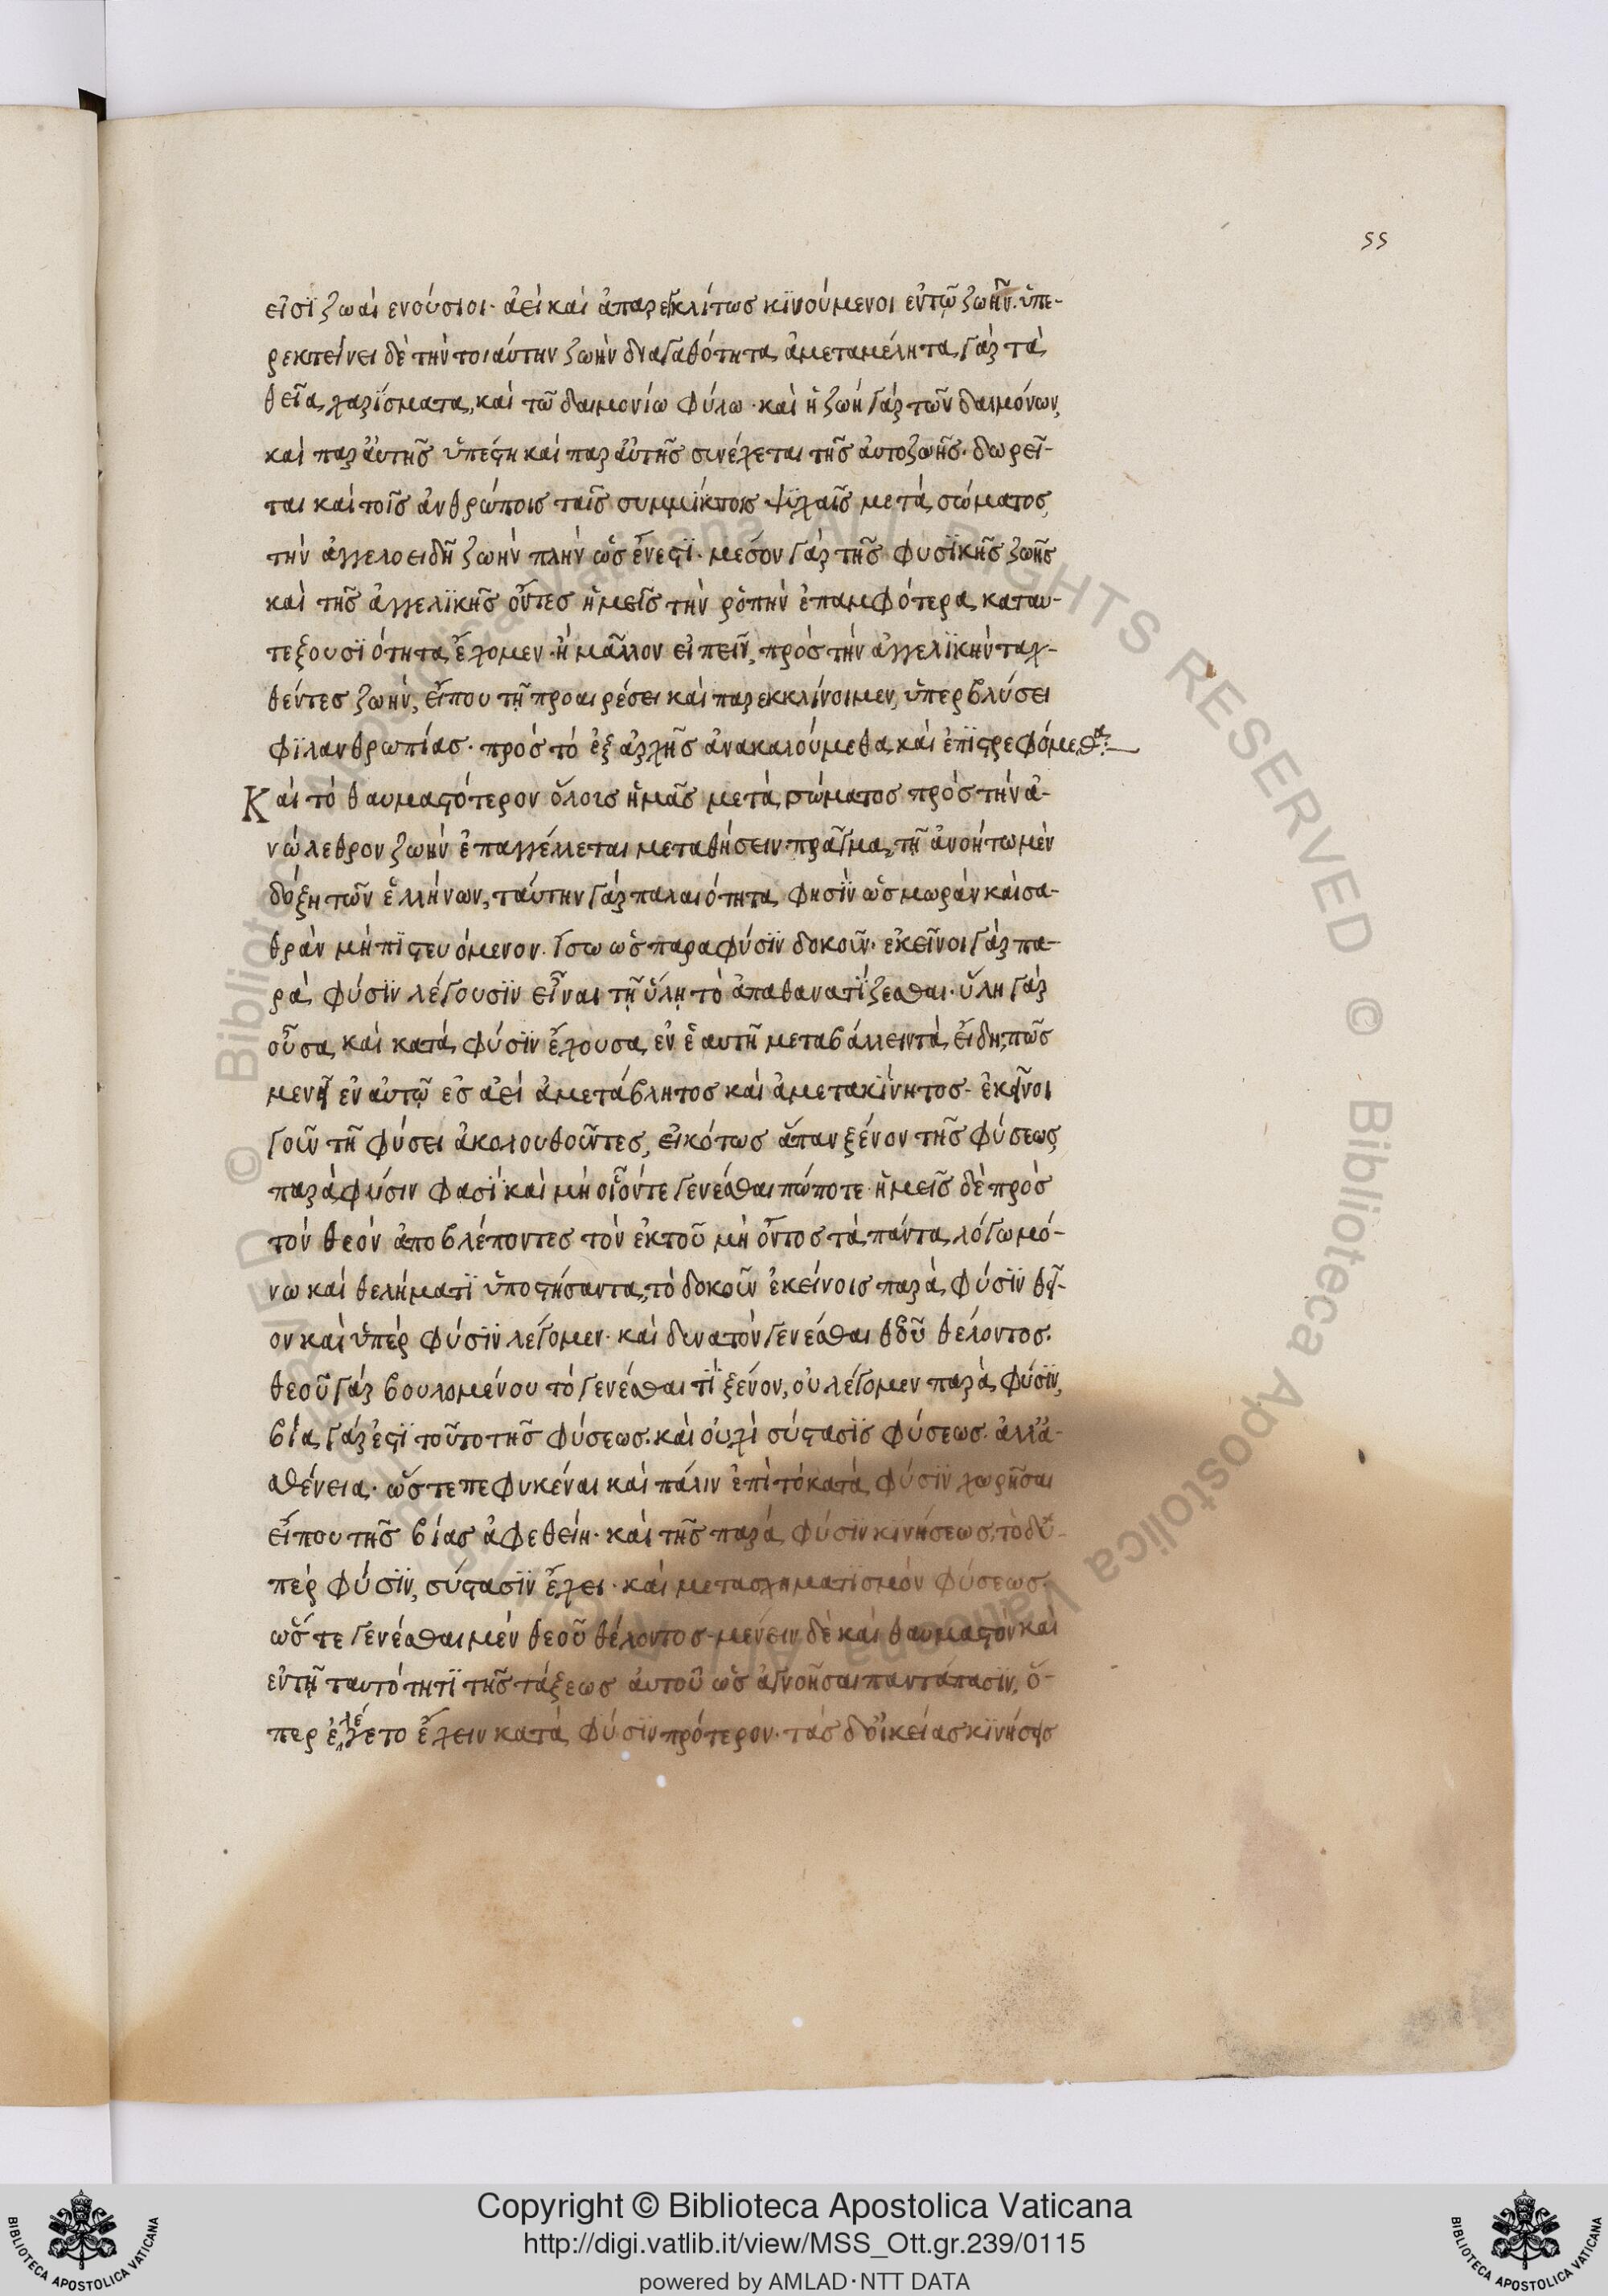 55
εἰσὶ ζωαὶ ενούσιοι· ἀεὶ καὶ ἀπαρεκκλίτως κϊνούμενοι εν τῷ ζωῆν. ὑπε-
ρεκτείνει δὲ τὴν τοιαύτην ζωὴν δι' αγαθότητα, ἀμεταμέλητα γὰρ τὰ
θεῖα χαρΐσματα, καὶ τῶ δαιμονίω φύλω· καὶ ἡ ζωή γὰρ τῶν δαιμόνων,
καὶ παρ αὐτῆς ὑπέστη καὶ παρ αὐτῆς συνέχεται τῆς αυτοζωῆς· δωρεῖ-
ται καὶ τοῖς ἀνθρώποις ταῖς συμμΐκτοις ψϋχαῖς μετὰ σώματος,
τὴν ἀγγελοειδῆ ζωὴν πλὴν ὡς ἔνεστϊ· μέσον γὰρ τῆς φυσϊκῆς ζωῆς
καὶ τῆς ἀγγελϊκῆς ὄντες ἡμεῖς τὴν ῥοπὴν ἐπαμφότερα κατ αυ-
τεξουσϊότητα ἔχομεν· ἢ μᾶλλον εἰπεῖν, πρὸς τὴν ἀγγελϊκὴν ταχ-
θέντες ζωὴν, εἴπου τῇ προαιρέσει καὶ παρεκκλίνοιμεν, ὑπερβλύσει
φϊλανθρωπίας· πρὸς τὸ ἐξ ἀρχῆς ἀνακαλούμεθα καὶ ἐπϊστρεφόμεθα:—
Καὶ τὸ θαυμαστότερον ὅλοις ἡμᾶς μετὰ σώματος πρὸς τὴν ἀ-
νώλεθρον ζωὴν ἐπαγγέλλεται μεταθήσειν πρᾶγμα, τῇ ἀνοήτω μὲν
δόξη τῶν ἑλλήνων, ταύτην γὰρ παλαιότητα φησΐν ὡς μωρὰν καὶ σα-
θρὰν μὴ πϊστευόμενον. ἴσω ὡς παρα φύσϊν δοκοῦν· ἐκεῖνοι γὰρ πα-
ρὰ φύσϊν λέγουσϊν εἶναι τῇ ὕλῃ τὸ ἀπαθανατΐζεσθαι· ὕλη γὰρ
οὖσα καὶ κατὰ φύσϊν ἔχουσα, ἐν ἑαυτῇ μεταβάλλειν τὰ εἴδη, πῶς
μενεῖ ἐν αὐτῷ ἐς ἀεὶ ἀμετάβλητος καὶ ἀμετακΐνητος· ἐκεῖνοι
γοῦν τῇ φύσει ἀκολουθοῦντες, εἰκότως ἅπαν ξένον τῆς φύσεως
παρὰ φύσιν φασὶ καὶ μὴ οἷόντε γενέσθαι πώποτε· ἡμεῖς δὲ πρὸς
τὸν θεὸν ἀποβλέποντες τὸν ἐκ τοῦ μὴ ὄντος τὰ πάντα, λόγω μό-
νω καὶ θελήματϊ ὑποστήσαντα, τὸ δοκοῦν ἐκείνοις παρὰ φύσϊν θεῖ-
ον καὶ ὑπὲρ φύσϊν λέγομεν· καὶ δυνατὸν γενέσθαι θεοῦ θέλοντος.
θεοῦ γὰρ βουλομένου τὸ γενέσθαι τΐ ξένον, οὐ λέγομεν παρὰ φύσϊν,
βία γάρ ἐστϊ τοῦτο τῆς φύσεως. καὶ οὐχὶ σύστασϊς φύσεως· ἀλλ' ἀ-
σθένεια· ὥστε πεφυκέναι καὶ πάλιν ἐπὶ τὸ κατὰ φύσϊν χωρῆσαι
εἴπου τῆς βίας ἀφεθείη· καὶ τῆς παρὰ φύσϊν κινήσεως, τὸ δ' ὑ-
πὲρ φύσϊν, σύστασϊν ἔχει· καὶ μετασχηματϊσμὸν φύσεως·
ὥστε γενέσθαι μὲν θεοῦ θέλοντος· μένειν δὲ καὶ θαυμαστὸν καὶ
ἐν τῇ ταυτότητϊ τῆς τάξεως αὐτοῦ ὡς ἀγνοῆσαι παντάπασϊν, ὅ-
περ ἐλέγετο ἔχειν κατὰ φύσϊν πρότερον· τὰς δ' οἰκείας κϊνήσεις
Copyright © Biblioteca Apostolica Vaticana
http://digi.vatlib.it/view/MSS_Ott.gr.239/0115
powered by AMLAD·NTT DATA